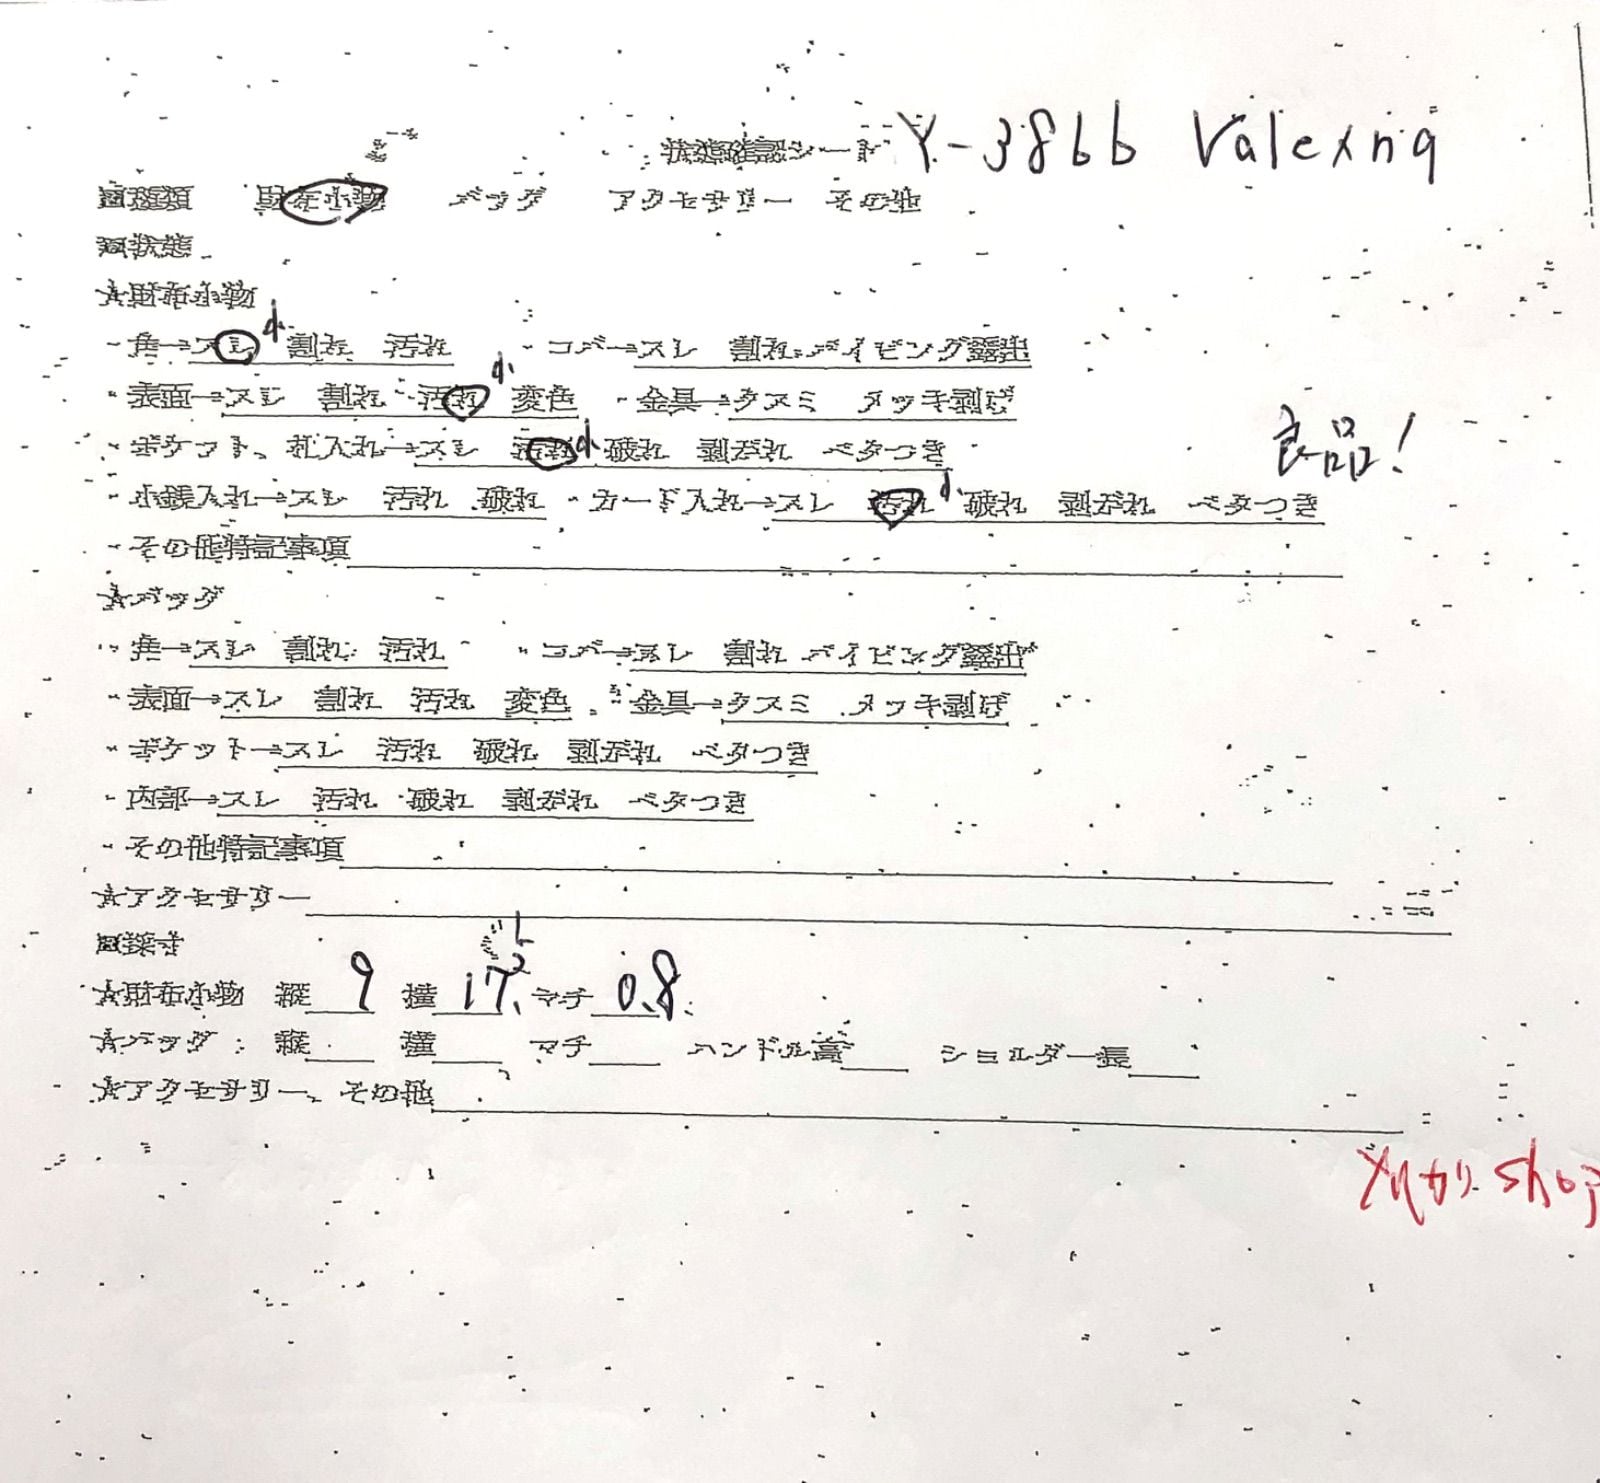 状態確認シート Y-3866 Valexnq
■種類 財布小物 バッグ アクセサリー その他
■状態
★財布小物
・角→スレ 小 割れ 汚れ ・コバ→スレ 割れ パイピング露出
・表面→スレ 割れ 汚れ 小 変色 ・金具→クスミ メッキ剥げ
・ポケット、札入れ→スレ 汚れ 小 破れ 剥がれ ベタつき
良品!
・小銭入れ→スレ 汚れ 破れ ・カード入れ→スレ 汚れ 小 破れ 剥がれ ベタつき
・その他特記事項
★バッグ
・角→スレ 割れ 汚れ ・コバ→スレ 割れ パイピング露出
・表面→スレ 割れ 汚れ 変色 ・金具→クスミ メッキ剥げ
・ポケット→スレ 汚れ 破れ 剥がれ ベタつき
・内部→スレ 汚れ 破れ 剥がれ ベタつき
・その他特記事項
★アクセサリー
■採寸
★財布小物 縦 9 横 17 マチ 0.8
★バッグ 縦 横 マチ ハンドル高 ショルダー長
★アクセサリー、その他
メルカリ shop